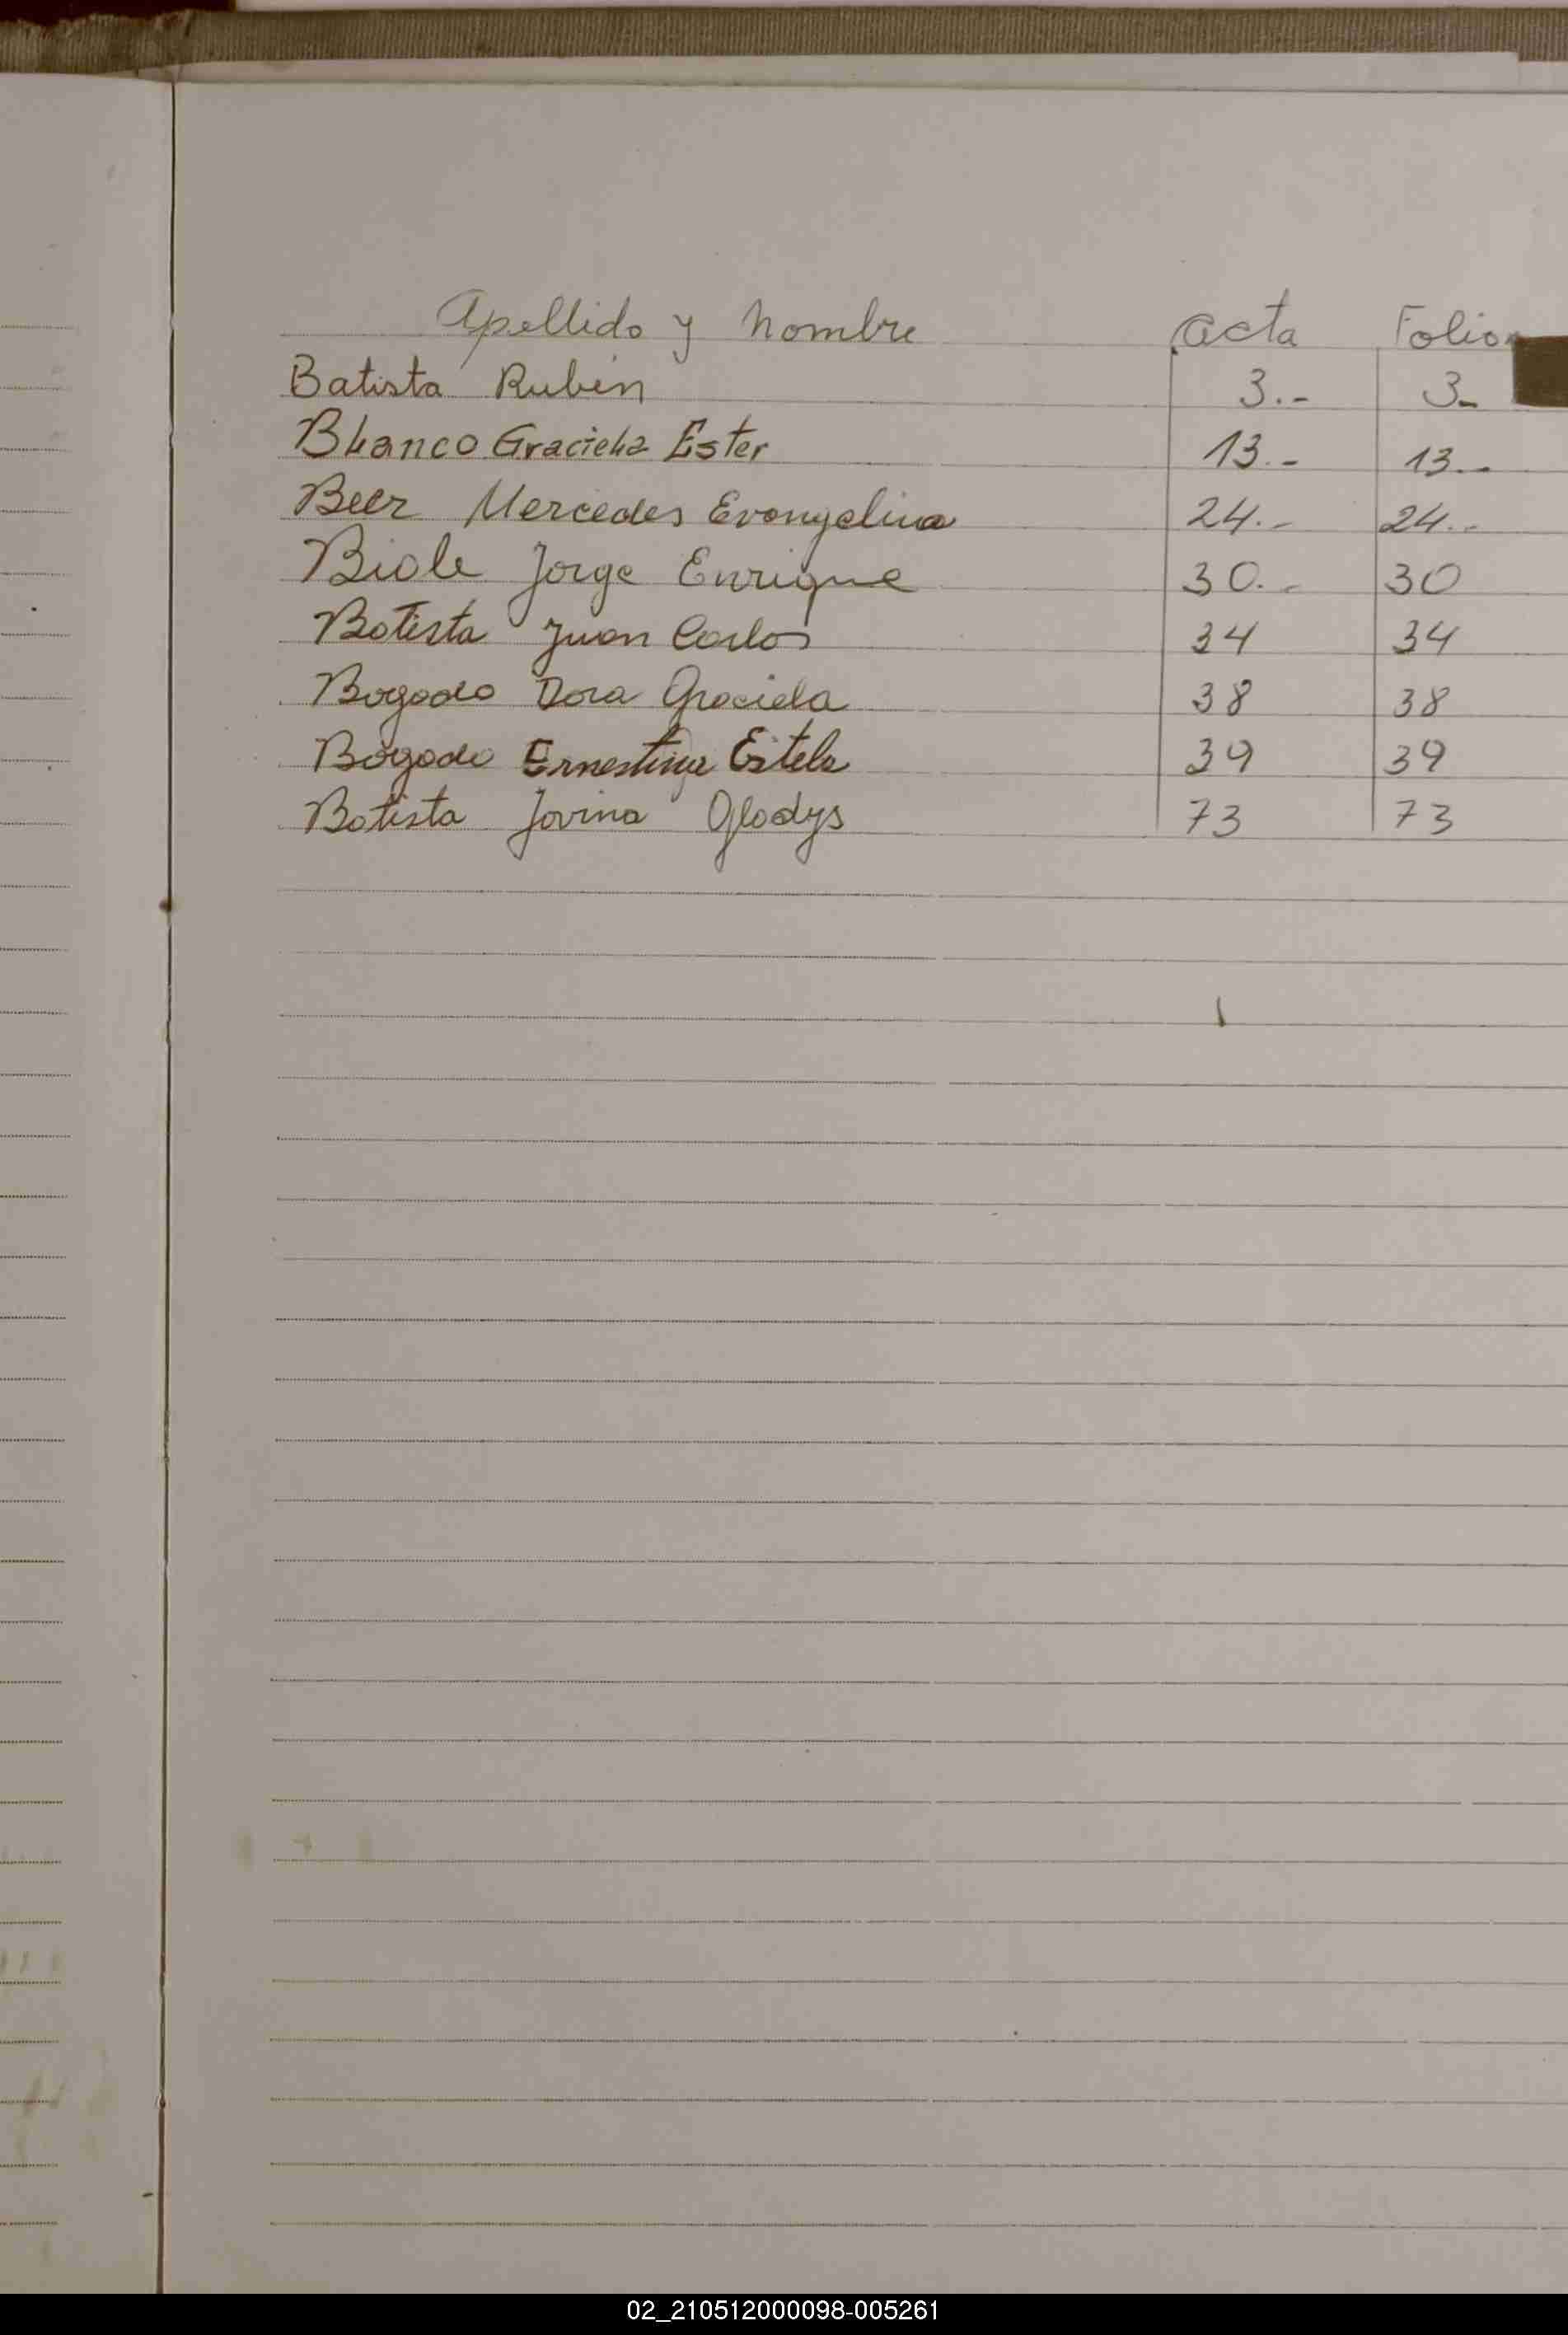 Apellido y Nombre Acta Folio
Batista Rubén 3.- 3-
Blanco Graciela Ester 13.- 13.-
Beer Mercedes Evangelina 24.- 24.-
Biole Jorge Enrique 30.- 30
Batista Juan Carlos 34 34
Bogado Dora Graciela 38 38
Bogado Ernestina Estela 39 39
Batista Jovina Gladys 73 73
02_210512000098-005261